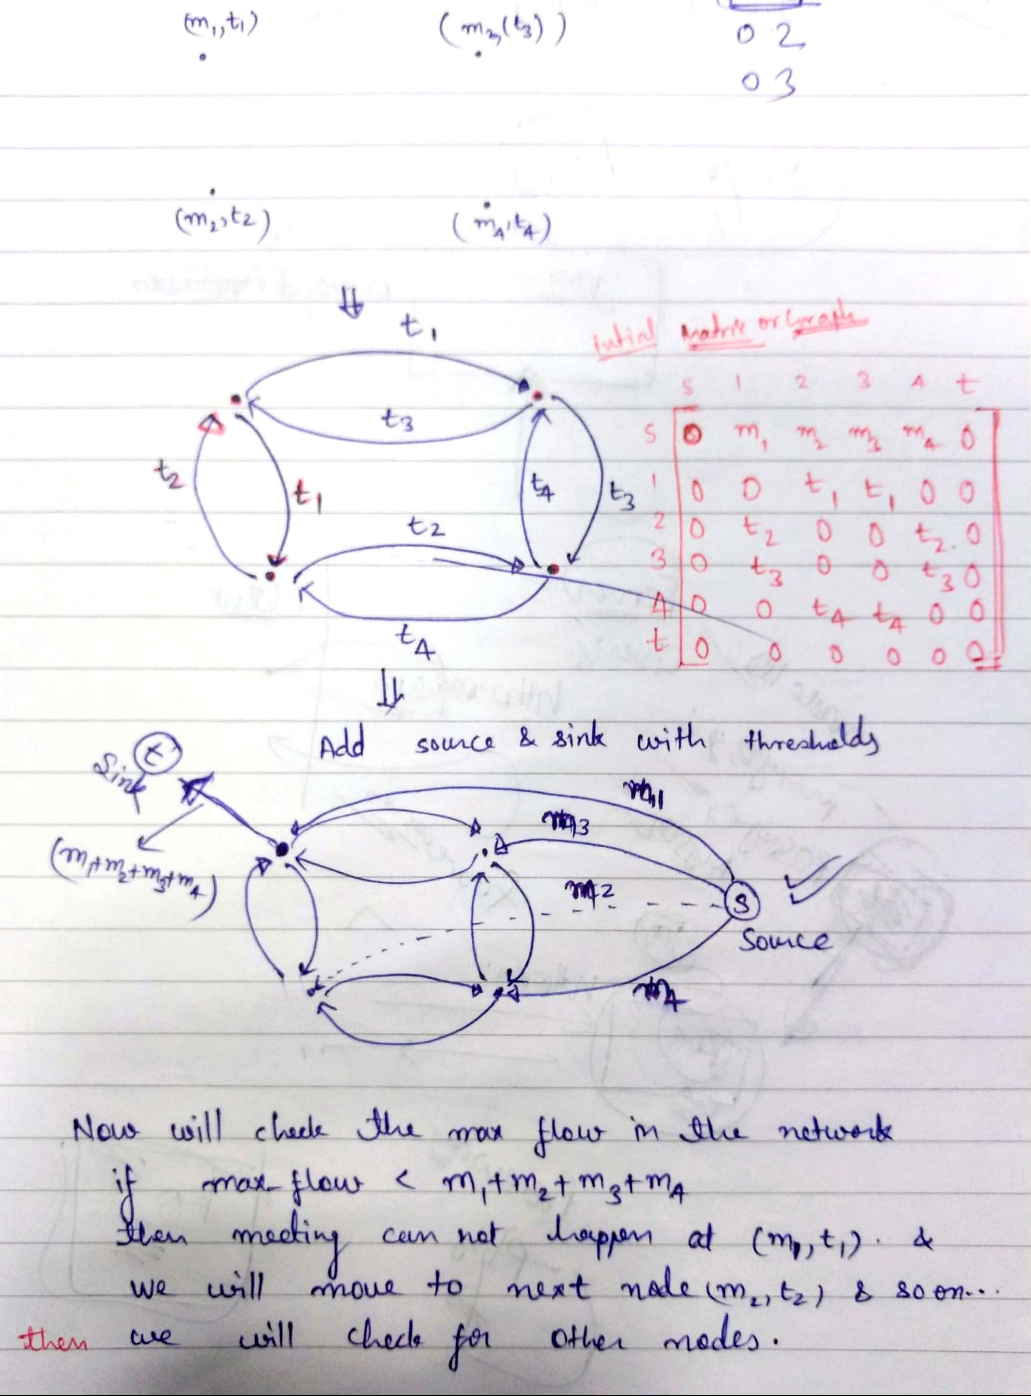 (m₁,t₁) (m₃,(t₃))
0 2
0 3
(m₂,t₂) (m₄,t₄)
⇓
t₁
t₃
t₂ t₁ t₄ t₃
t₂
t₄
Intial Matrix or Graph
S 1 2 3 4 t
S 0 m₁ m₂ m₃ m₄ 0
1 0 0 t₁ t₁ 0 0
2 0 t₂ 0 0 t₂ 0
3 0 t₃ 0 0 t₃ 0
4 0 0 t₄ t₄ 0 0
t 0 0 0 0 0 0
⇓
Add source & sink with thresholds
Sink t
m₁
m₃
(m₁+m₂+m₃+m₄)
m₂
S
Source
m₄
Now will check the max flow in the network
if max-flow < m₁+m₂+m₃+m₄
then meeting can not happen at (m₁,t₁). &
we will move to next node (m₂,t₂) & so on...
then we will check for other nodes.